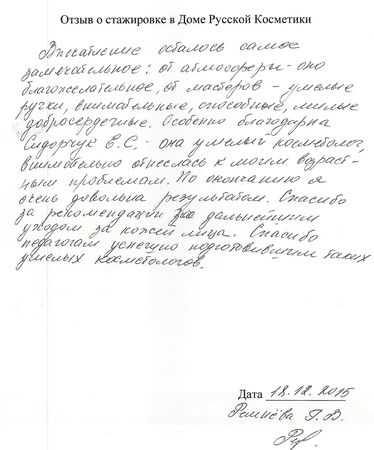 Отзыв о стажировке в Доме Русской Косметики
Впечатление осталось самое
замечательное: от атмосферы - оно
благожелательное, от мастеров - умелые
ручки, внимательные, способные, милые
добросердечные. Особенно благодарна
Сидорчук Е.С. - она умелый косметолог,
внимательно отнеслась к моим возраст-
ным проблемам. По окончанию я
очень довольна результатом. Спасибо
за рекомендации за дальнейшим
уходом за кожей лица. Спасибо
педагогам успешно подготовившим таких
умелых косметологов.
Дата 18.12.2015
Ремнёва Т.В.